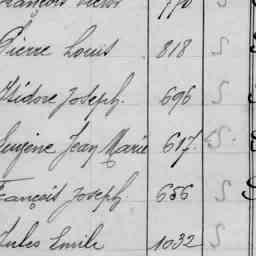 François Victor 770 S
Pierre Louis 818 S
Isidore Joseph. 696 S
Eugène Jean Marie 617 S
François Joseph. 656 S
Jules Emile 1032 S